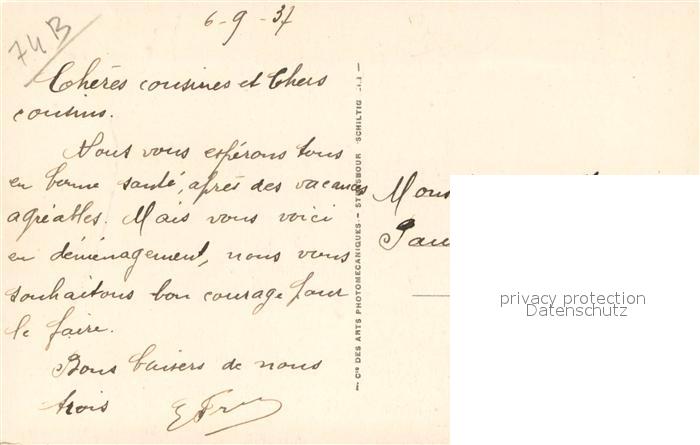 74B
6-9-37
Chères cousines et Chers
cousins.
Nous vous espérons tous
en bonne santé, après des vacances
agréables. Mais vous voici
en déménagement, nous vous
souhaitons bon courage pour
le faire.
Bons baisers de nous
trois
— Cie DES ARTS PHOTOMECANIQUES — STRASBOURG SCHILTIG
privacy protection
Datenschutz